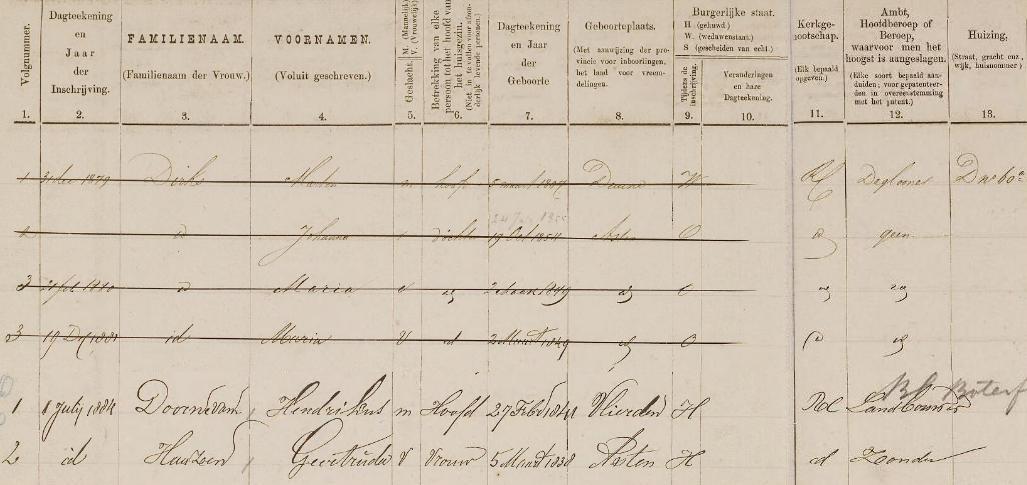 Volgnummer.
Dagteekening en Jaar der Inschrijving.
FAMILIENAAM.
(Familienaam der Vrouw.)
VOORNAMEN.
(Voluit geschreven.)
Geslacht. M. (Mannelijk) V. (Vrouwelijk)
Betrekking van elke persoon tot het hoofd van het huisgezin.
(Niet in te vullen voor afzonderlijk levende personen.)
Dagteekening en Jaar der Geboorte
Geboorteplaats.
(Met aanwijzing der provincie voor inboorlingen, het land voor vreemdelingen.
Burgerlijke staat.
H (gehuwd.)
W. (weduwenstaat.)
S (gescheiden van echt.)
Tijdens de inschrijving.
Veranderingen en hare Dagteekening.
Kerkgenootschap.
(Elk bepaald opgeven.)
Ambt, Hoofdberoep of Beroep, waarvoor men het hoogst is aangeslagen.
(Elke soort bepaald aanduiden; voor gepatenteerden in overeenstemming met het patent.)
Huizing,
(Straat, gracht enz., wijk, huisnommer)
1. 2. 3. 4. 5. 6. 7. 8. 9. 10. 11. 12. 13.
1 31 dec 1879 Dirks m hoofd Deurne W RC Dagloner
Johanna dochter 19 Oct 1854 Asten O geen
3 Maria 1849
3 19 1881 id Maria V id 2 Maart 1849 O
1 8 July 1884 Doorne van Hendrikus m Hoofd 27 Febr 1841 Vlierden H RC Landbouwer
2 id Geertruda V Vrouw 5 Maart 1838 Asten H id Zonder